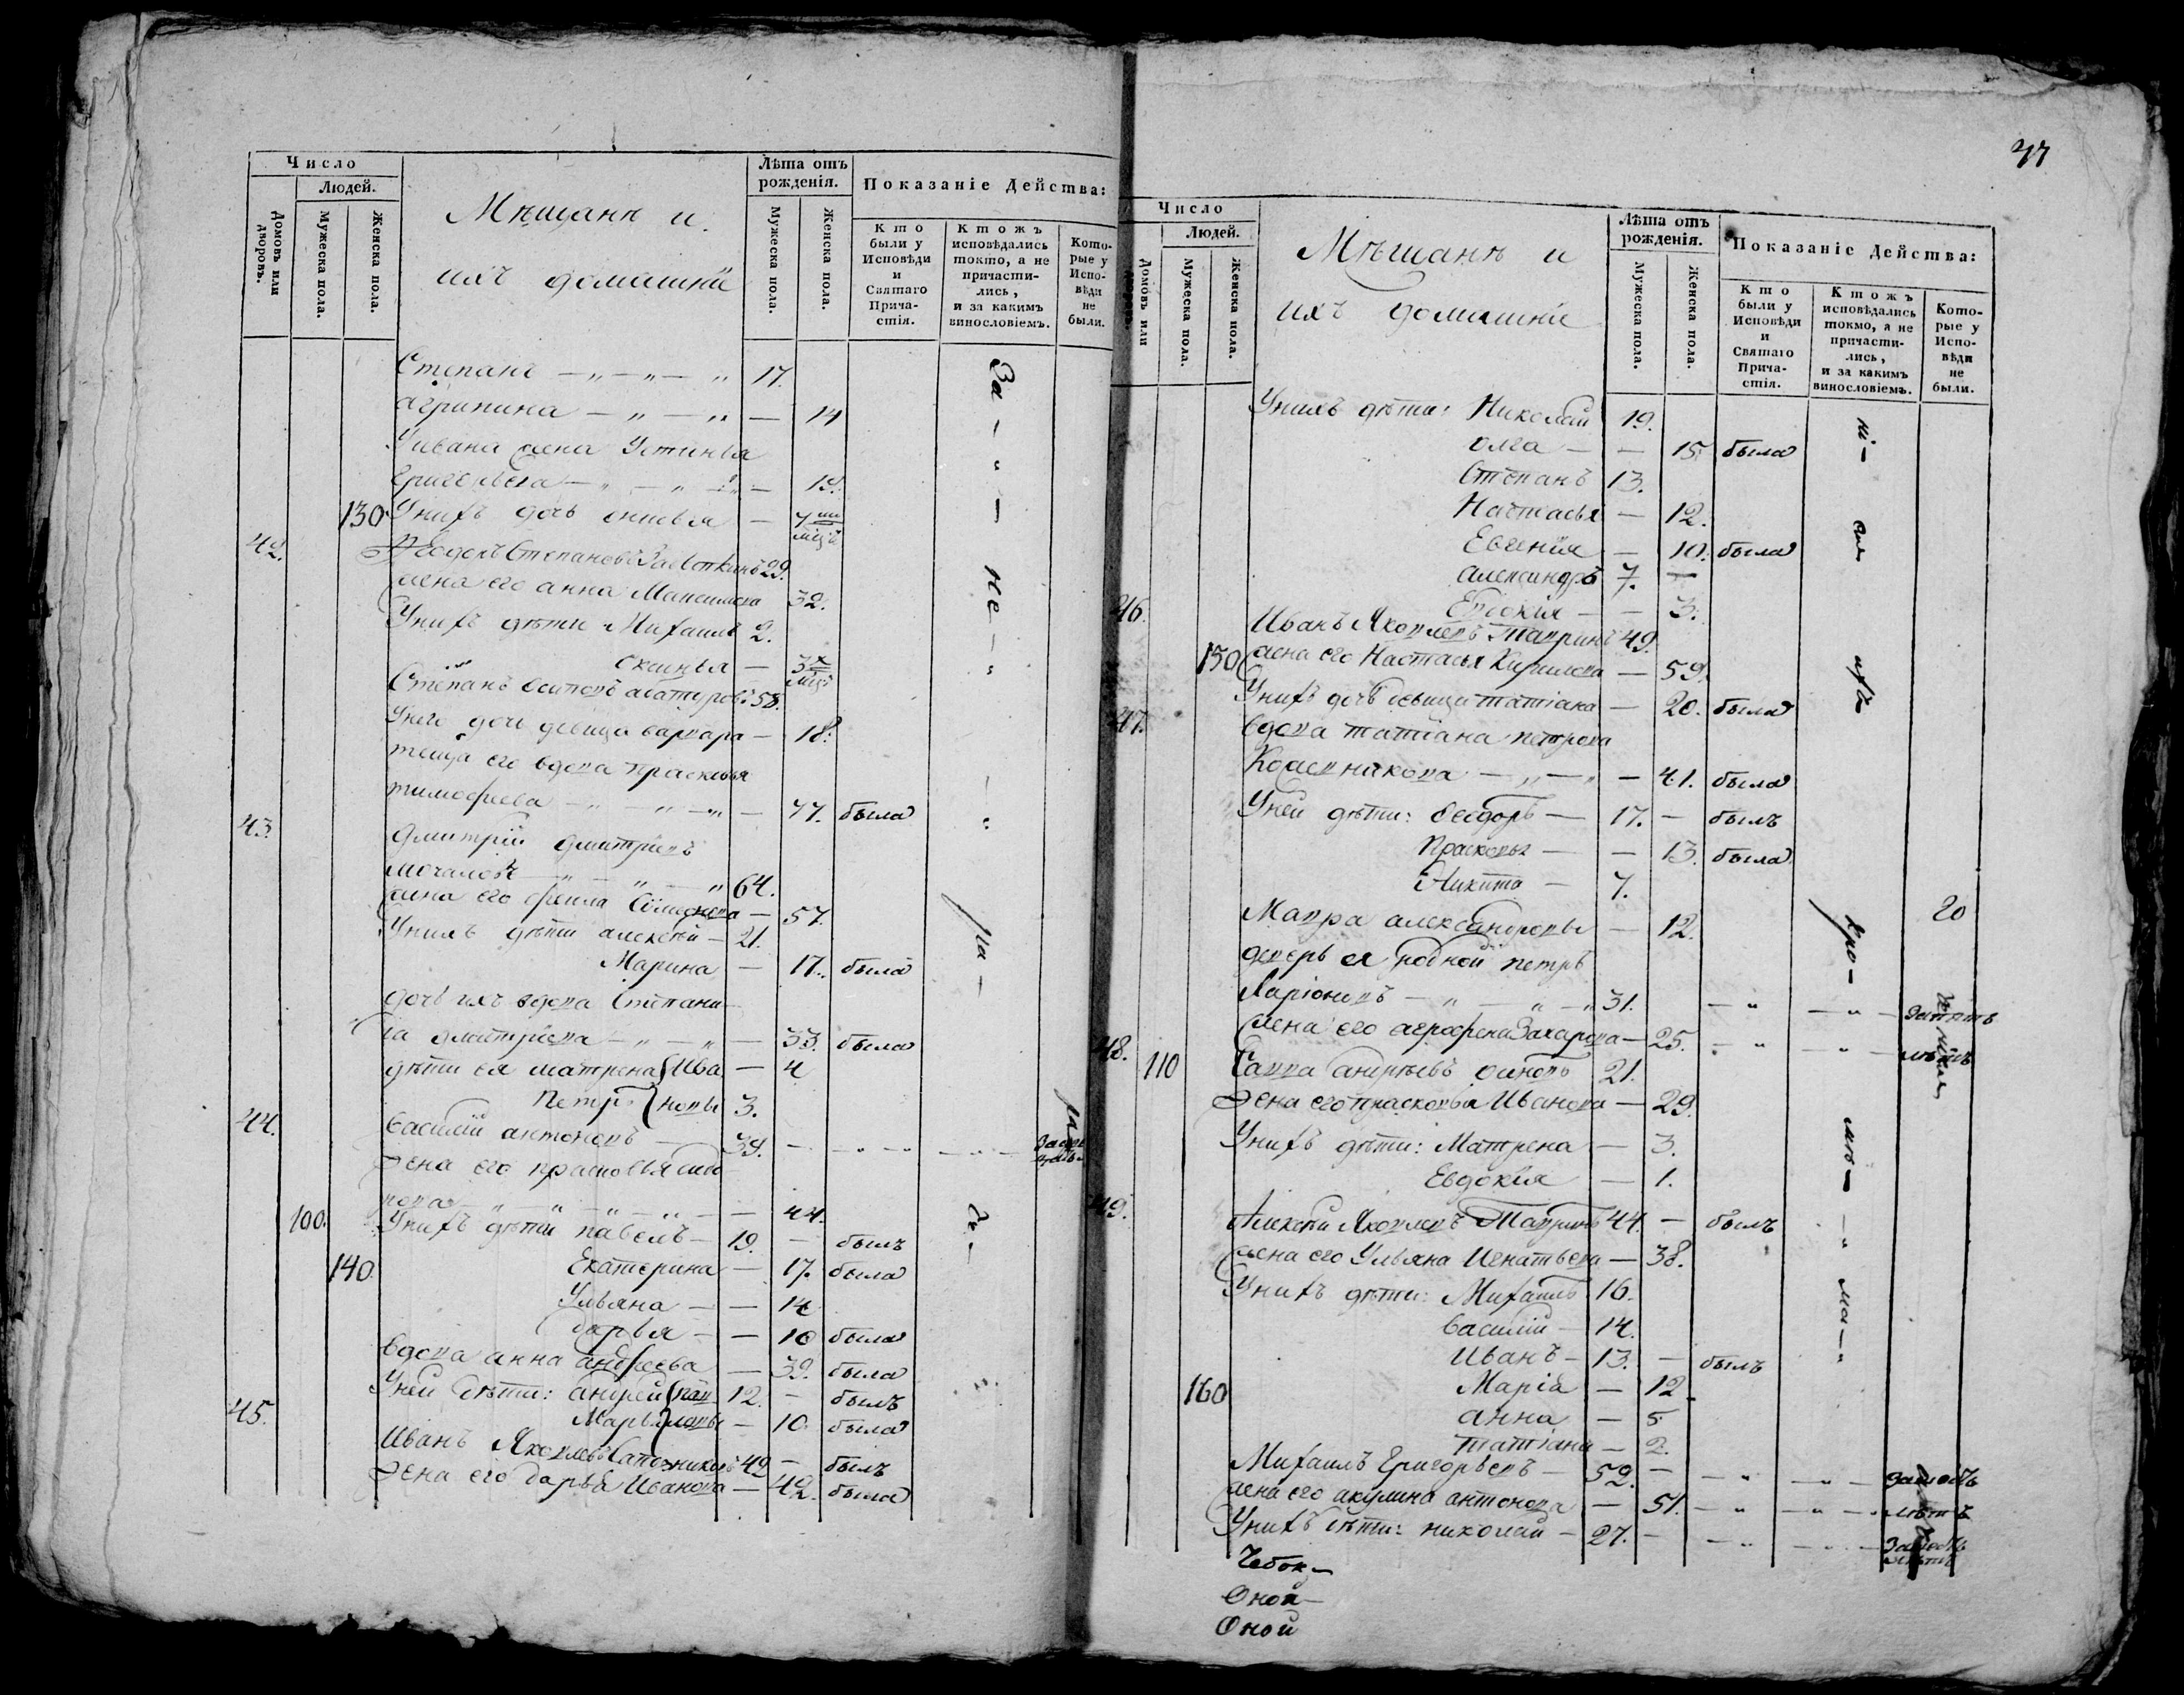 Число
Людей.
Домовъ или дворовъ.
Мужеска пола.
Женска пола.
Мѣщанѣ и
ихъ домашніе
Лѣта отъ рожденія.
Мужеска пола.
Женска пола.
Показаніе Действа:
Кто были у Исповѣди и Святаго Причастія.
Ктожъ исповѣдались токмо, а не причастились, и за какимъ винословіемъ.
Которые у Исповѣди не были.
Степанъ — „ — „ — „ 17.
агрипина — „ — „ — 14
Уивана жена Устинья
Григорьева — „ — „ — 19.
130 Унихъ дочь —
42. Феодоръ Степановъ 29.
жена его анна Максимова 32.
Унихъ дѣти Михаилъ 2.
Степанъ Осиповъ 58.
Унего дочь девица варвара — 18.
теща его вдова Прасковья
тимофеева — „ — „ — „ — 77. была
43. Дмитрій Дмитріевъ
мочаловъ — „ — „ — „ 64.
жена его — 57.
Унихъ дѣти алексѣй — 21.
Марина — 17. была
дочь ихъ вдова Степани
да дмитріева — „ — „ — 33. была
дѣти ея матрена Ива — 4
Петръ новы 3.
44. василій антоновъ — 39. — „ — „ —
Жена его прасковья
— „ — „ — „ — 44.
100. Унихъ дѣти павелъ — 19. — былъ
140. Екатерина — 17. была
Ульяна — — 14
дарья — — 10 была
вдова анна андреева — 39. была
Уней дѣти: андрей 12. — былъ
Марья — 10. была
45. Иванъ Яковлевъ Сапожниковъ 42 — былъ
Жена его дарья Иванова — 42. была
Число
Людей.
Домовъ или
Мужеска пола.
Женска пола.
Мѣщанѣ и
ихъ домашніе
Лѣта отъ рожденія.
Мужеска пола.
Женска пола.
Показаніе Действа:
Кто были у Исповѣди и Святаго Причастія.
Ктожъ исповѣдались токмо, а не причастились, и за какимъ винословіемъ.
Которые у Исповѣди не были.
Унихъ дѣти: Николай 19.
олга — — 15. была
Степанъ 13.
Настасья — 12.
Евгенія — 10. была
александръ 7. —
Евдокія — — 3.
46. Иванъ Яковлевъ Тавринъ 49.
150 жена его Настасья Кирилова — 59.
Унихъ дочь девица татіана — 20. была
47. вдова татіана петрова
— „ — „ — 41. была
Уней дѣти: Феодоръ — 17. — былъ
Прасковья — — 13. была
Никита — 7.
Мавра александровы — 12.
20
деверь ея родной петръ
Ларіоновъ — „ — „ — „ 31. — „ — „ —
жена его агрофена Захарова — 25. — „ — „ —
48. 110 Савва андреевъ 21.
Жена его прасковья Иванова — 29.
Унихъ дѣти: Матрена — 3.
Евдокія — 1.
49. Алексѣй Яковлевъ Тавринъ 44. — былъ
жена его Ульяна Игнатьева — 38.
Унихъ дѣти: Михаилъ 16.
василій — 14.
Иванъ — 13. — былъ
160 Марія — 12
анна — 5
татіана — 2.
Михаилъ Григорьевъ — 52. — — „ — „ —
жена его акулина антонова — 51. — „ — „ —
Унихъ дѣти: николай — 27. — — „ — „ —
Чебок—
Оной—
Оной